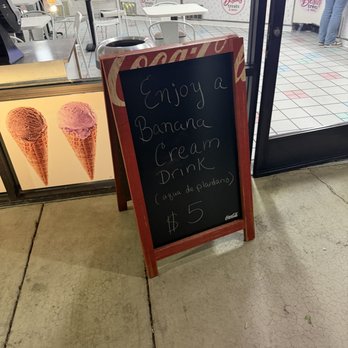 Coca-Cola
Enjoy a
Banana
Cream
Drink
(agua de plantano)
$5
Coca-Cola